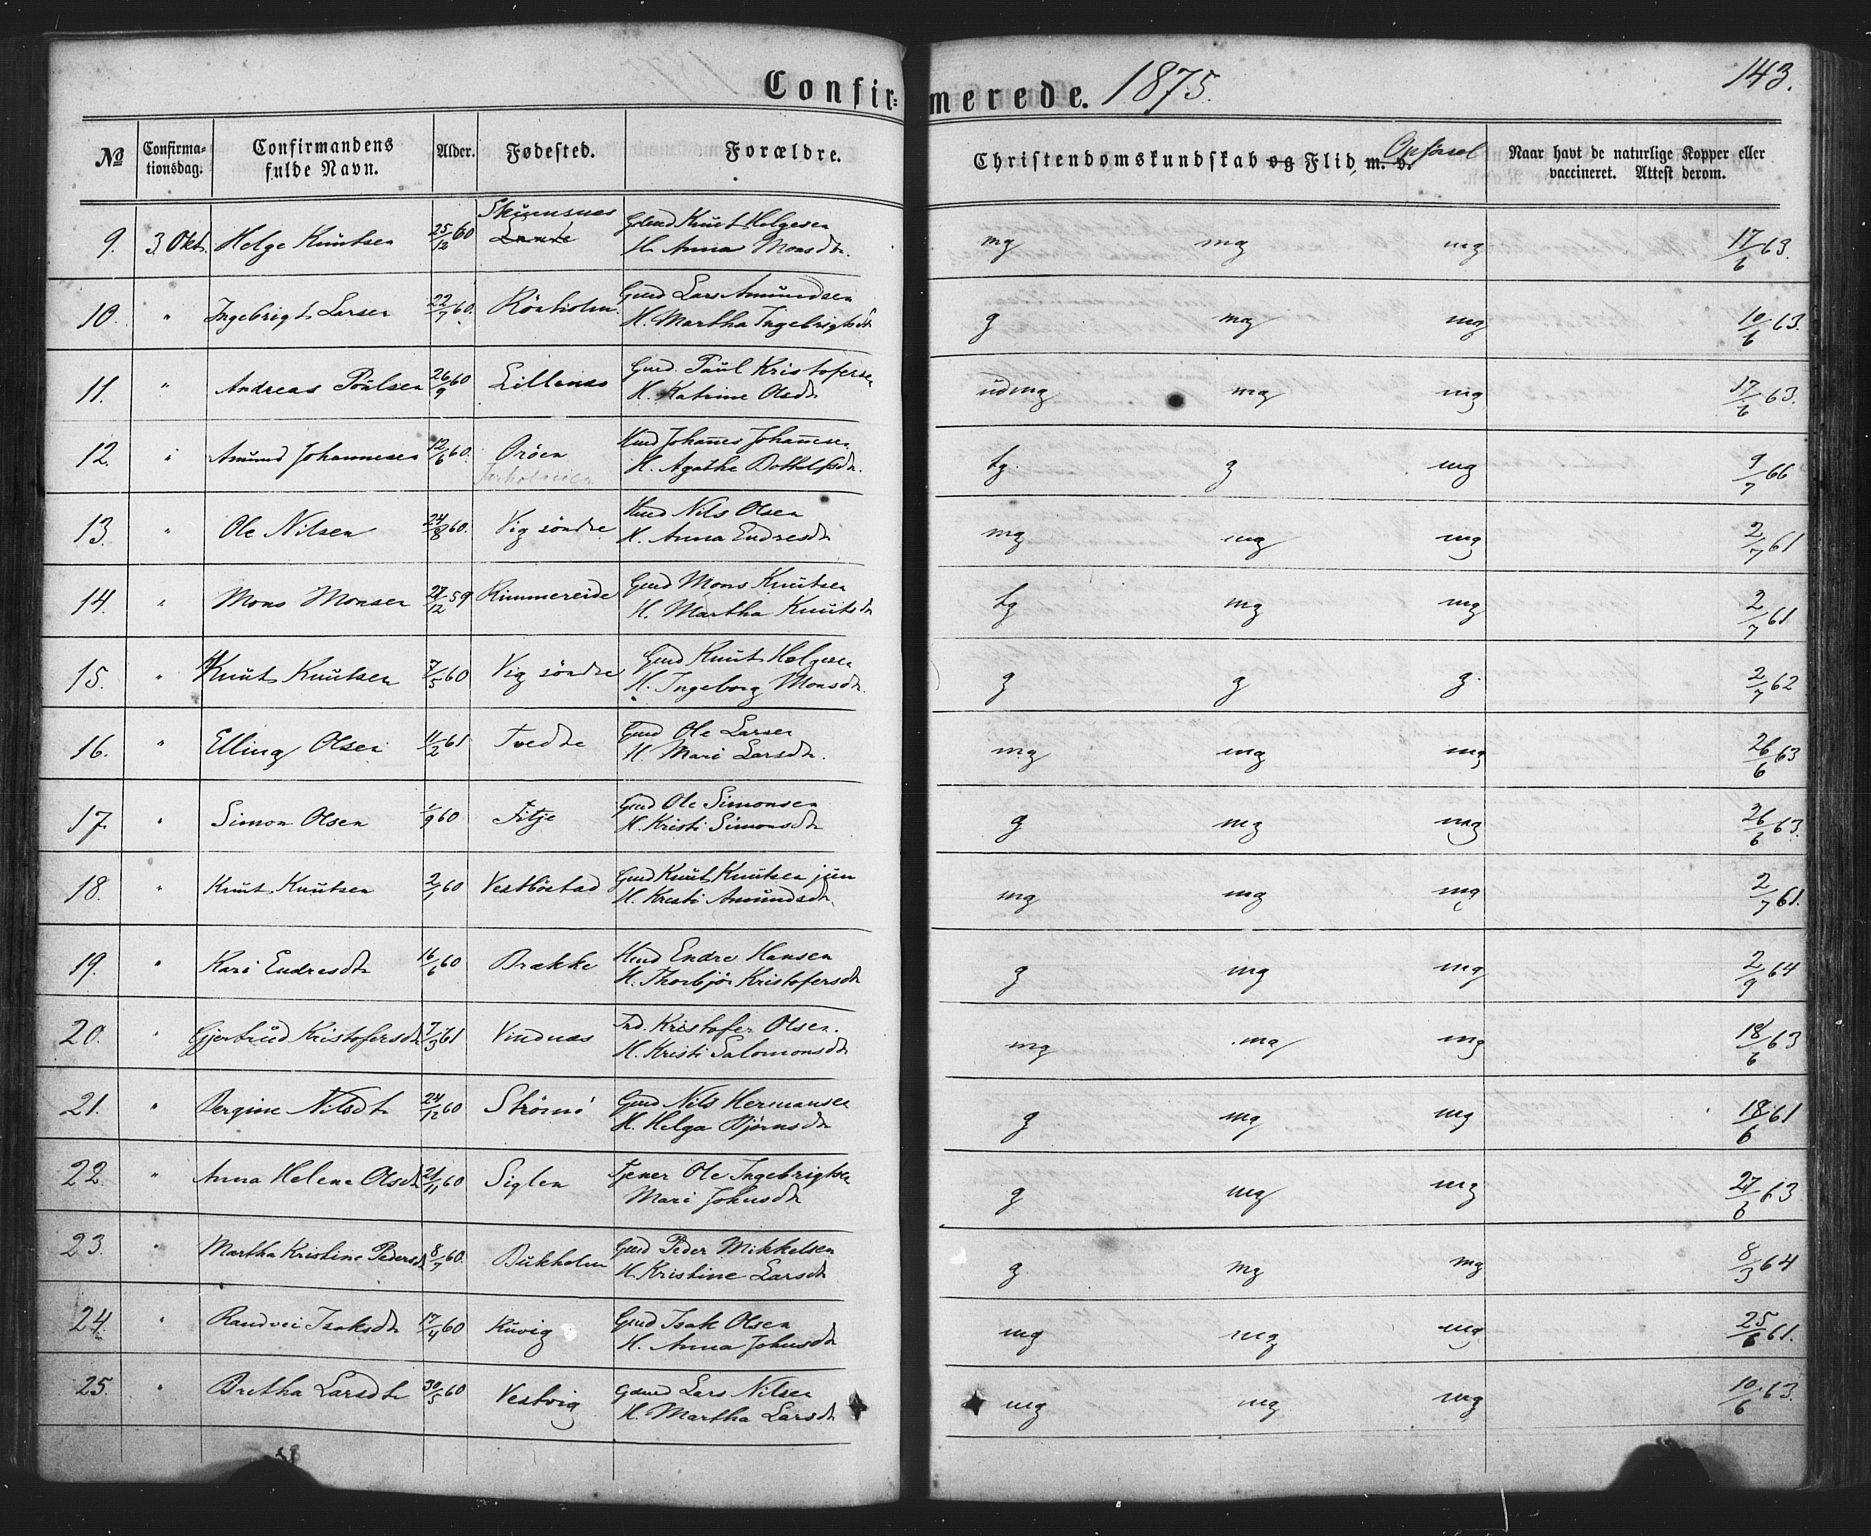 Confirmerede. 1875. 143.
No Confirmationsdag. Confirmandens fulde Navn. Alder. Fødested. Forældre. Christendomskundskab og Flid, m. v. Opførsel Naar havt de naturlige Kopper eller vaccineret. Attest derom.
Skumsnes Gmd Knut Helgesen
9. 3 Okt. Helge Knutsen 25/12 60 mg mg mg 17/6 63.
H. Anna Monsdtr.
Gmd Lars Amundsen
10. " Ingebrigt Larsen 22/7 60. Röxholm g mg mg 10/6 63.
H. Martha Ingebrigtsdt
Gmd. Paul Kristofersen
11. " Andreas Poulsen 26/9 60 Lillenes udmg mg mg 17/6 63.
H. Katrine Olsdtr
Hmd Johanes Johanesen
12. " Amund Johannesen 12/6 60. Oröen tg. g mg 9/7 66
H. Agathe Bottolfsdtr.
Hmd Nils Olsen
13. " Ole Nilsen 24/8 60. Vig söndre mg mg mg 2/7 61
H. Anna Endresdtr
Gmd Mons Knutsen
14. " Mons Monsen 27/12 59 Rimmereide tg mg mg 2/7 61
H. Martha Knutsdtr
Gmd Knut Helgesen
15. " Knut Knutsen 7/5 60 Vig söndre g g g. 2/7 62
H. Ingeborg Monsdtr.
Gmd Ole Larsen
16. " Elling Olsen 11/2 61 Tvedte mg mg mg 26/6 63
H. Mari Larsdtr.
Gmd Ole Simonsen
17. " Simon Olsen 1/9 60 Fitje g mg mg 26/6 63.
H. Kristi Simonsdtr
Gmd Knut Knutsen jun
18. " Knut Knutsen 2/1 60 Vestböstad mg mg mg 2/7 61.
H. Kristi Amundsdtr.
Hmd Endre Hansen
19. " Kari Endresdtr 16/6 60 Brække g mg mg 2/9 64
H. Thorbjör Kristofersdtr
Ind. Kristofer Olsen.
20. " Gjertrud Kristofersdtr 7/3 61 Vindnæs mg mg mg 18/6 63
H. Kristi Salomonsdtr
Gmd Nils Hermansen
21. " Bergine Nilsdtr 24/12 60 Strömö g mg mg 18/6 61
H. Helga Björnsdtr
Tjener Ole Ingebrigtsen
22. " Anna Helene Olsdtr 21/11 60 Siglen g mg mg 27/6 63
Mari Johnsdtr
Gmd Peder Mikkelsen
23. " Martha Kristine Pedersdtr 8/7 60. Bukholm g. mg mg 8/3 64
H. Kristine Larsdtr
Gmd Isak Olsen
24. " Randvei Isaksdtr 17/4 60 Kuvig mg mg mg 25/6 61.
H. Anna Johnsdtr
Gdmd Lars Nilsen
25. " Bretha Larsdtr 30/5 60 Vestvig mg mg mg 10/6 63.
H. Martha Larsdtr